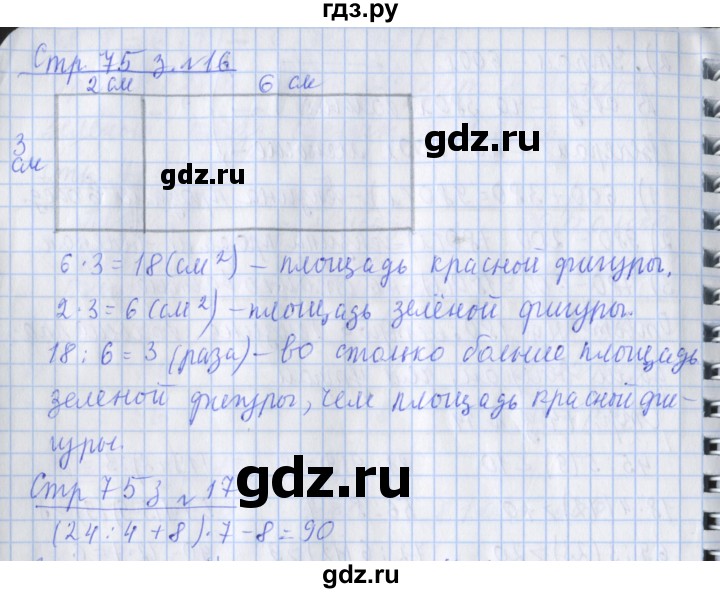 гдз.ру
Стр 75 з. №16
2 см 6 см
3 см
gdz.ru
gdz.ru
6·3=18(см²) – площадь красной фигуры.
2·3=6(см²) – площадь зелёной фигуры.
18:6=3 (раза) – во столько больше площадь
зеленой фигуры, чем площадь красной фи-
гуры.
Стр 75 з №17
gdz.ru
(24:4+8)·7-8=90
gdz.ru